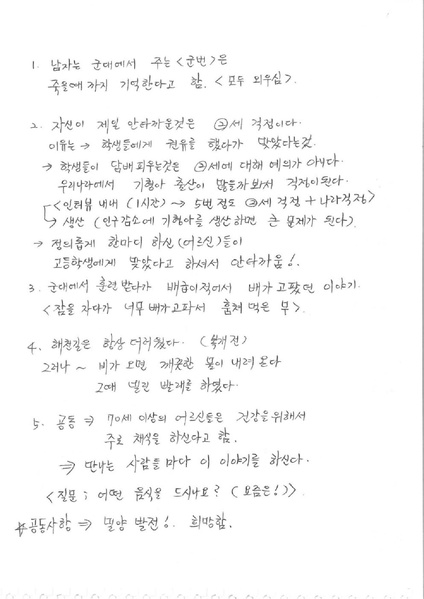 1. 남자는 군대에서 주는 <군번>은
죽을때까지 기억한다고 함. <모두 외우심>.
2. 자신이 제일 안타까운것은 ②세 걱정이다.
이유는 → 학생들에게 권유를 했다가 맞았다는것.
→ 학생들이 담배피우는것은 ②세에 대해 예의가 아니다.
우리나라에서 기형아 출산이 많을까봐서 걱정이된다.
<인터뷰 내내 (1시간) → 5번 정도 ②세 걱정 + 나라걱정>
→ 생산 (인구감소에 기형아를 생산하면 큰 문제가 된다)
→ 정의롭게 한마디 하신 (어르신)들이
고등학생에게 맞았다고 하셔서 안타까움!.
3. 군대에서 훈련받다가 배급이적어서 배가 고팠던 이야기.
<잠을 자다가 너무 배가고파서 훔쳐 먹은 무>.
4. 해천길은 항상 더러웠다. (복개전)
그러나 ~ 비가 오면 깨끗한 물이 내려 온다
그때 밀린 빨래를 하였다.
5. 공동 ⇒ 70세 이상의 어르신들은 건강을 위해서
주로 채식을 하신다고 함.
⇒ 만나는 사람들마다 이 이야기를 하신다.
<질문 ; 어떤 음식을 드시나요? (요즘은!)>
☆공통사항 ⇒ 밀양 발전!. 희망함.